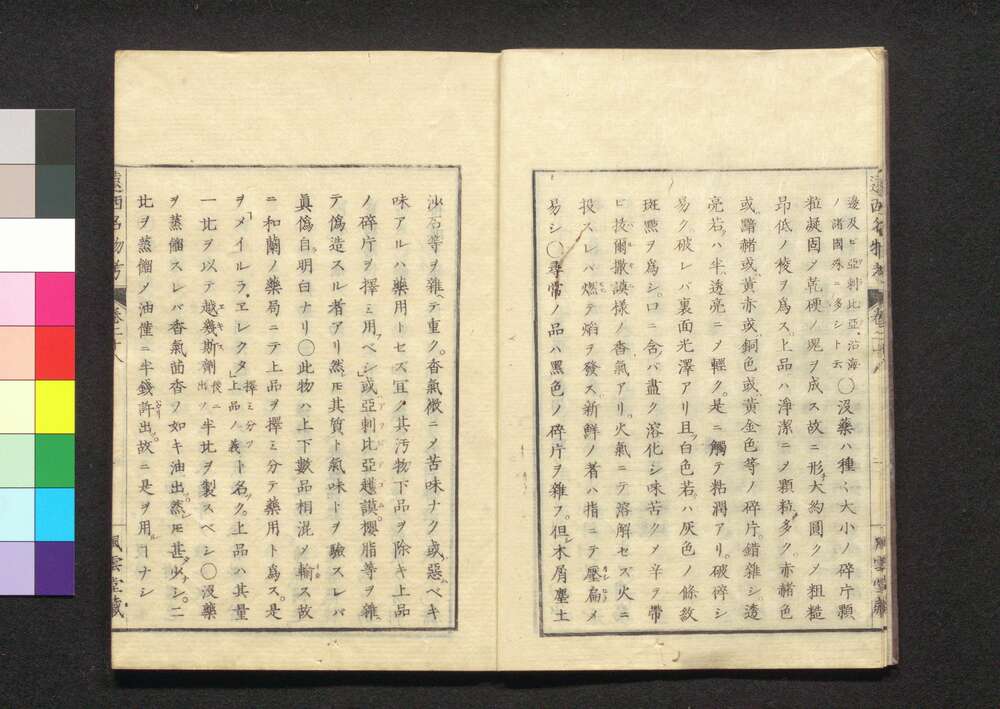 邊及ビ亞剌比亞沿海
ノ諸國殊ニ多シト云
○沒藥ハ種々大小ノ碎片顆
粒凝固メ乾硬ノ塊ヲ成ス故ニ形大約圓クメ粗糙
昂低ノ稜ヲ爲ス上品ハ淨潔ニメ顆粒多ク赤赭色
或黯赭或黃赤或銅色或黃金色等ノ碎片錯雜シ透
亮若ハ半透亮ニメ輕ク是ニ觸テ粘潤アリ破碎シ
易ク破レバ裏面光澤アリ且白色若ハ灰色ノ條紋
斑㸃ヲ爲シロニ含バ盡ク溶化シ味苦クメ辛ヲ帶
ビ拔爾撒謨樣ノ香氣アリ火氣ニテ溶解セズ火ニ
投スレバ燃テ焰ヲ發ス新鮮ノ者ハ指ニテ壓扁メ
易シ○尋常ノ品ハ黑色ノ碎片ヲ雜フ但木屑塵土
遠西名物考 卷二十八 風雲堂藏
沙石等ヲ雜テ重ク香氣微ニメ苦味ナク或惡ベキ
味アルハ藥用トセズ宜ク其汚物下品ヲ除キ上品
ノ碎片ヲ擇ミ用フベシ或亞剌比亞護謨櫻脂等ヲ雜
テ僞造スル者アリ然𪜈其質ト氣味トヲ驗スレバ
眞僞自明白ナリ○此物ハ上下數品相混メ輸ス故
ニ和蘭ノ藥局ニテ上品ヲ擇ミ分テ藥用ト爲ス是
ヲ「メイルラ、エレクタ」擇ミ分ツ
上品ノ義
ト名ク上品ハ其量
一比ヲ以テ越幾斯劑後ニ
出ツ
半比ヲ製スベシ○沒藥
ヲ蒸餾スレバ香氣茴香ノ如キ油出然𪜈甚少シ二
比ヲ蒸餾メ油僅ニ半錢許出故ニ是ヲ用ルヿナシ
遠西名物考 卷二十八 風雲堂藏